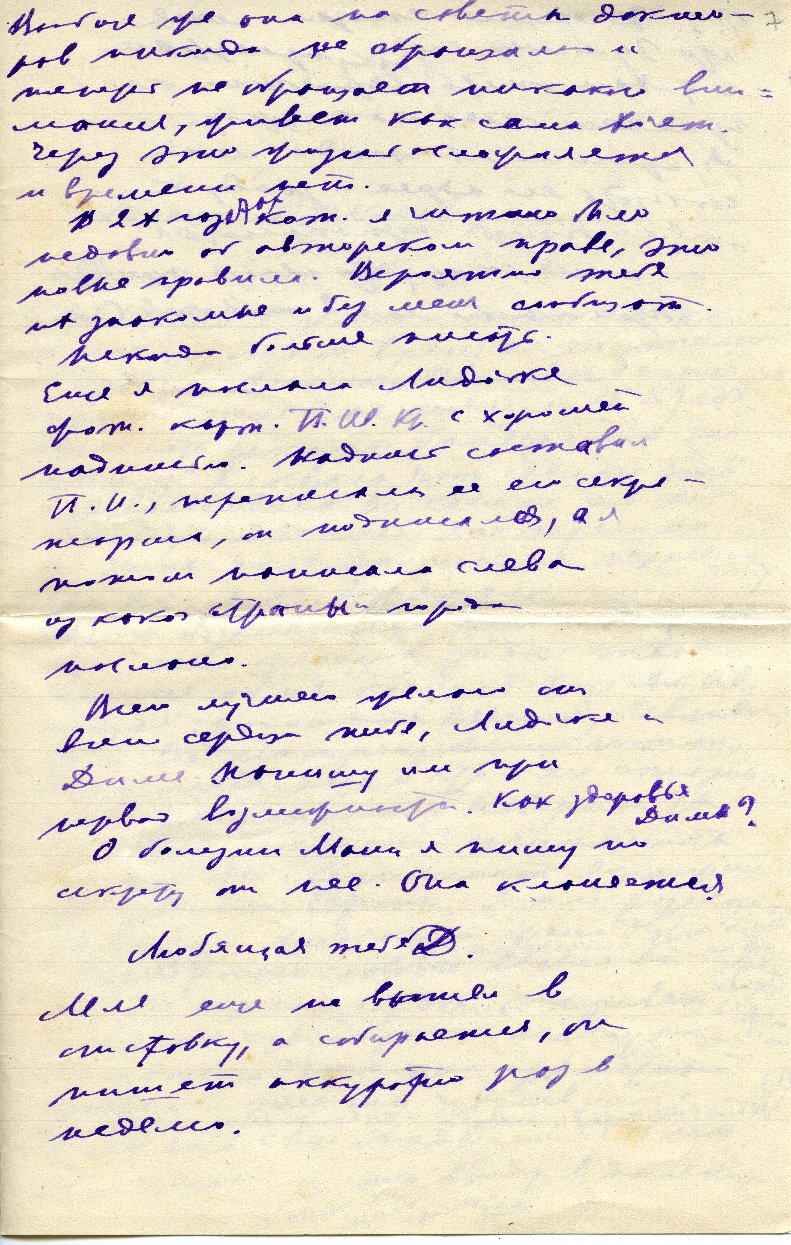 Вообще же она на советы докто-
ров никогда не обращала и
теперь не обращает никакого вни=
мания, живет как сама хочет.
Через это грудь ослабляется
и времени нет.
В газ. я читала было
недавно об авторском праве, это
новые правила. Вероятно тебе
их знакомые и без меня сообщат.
Некогда больше писать.
Еще я послала Лидочке
фот. карт. П. И. с хорошей
надписью. Надпись составил
П. И., переписала ее его секре-
тарша, он подписался, а я
потом написала слева
из какой страны и города
послано.
Всего лучшего желаю от
всего сердца тебе, Лидочке и
Диме. Напишу им при
первой возможности. Как здоровье
Димы?
О болезни Мани я пишу по
секрету от нее. Она кланяется
Любящая тебя Д.
еще не вышел в
отставку, а собирается, он
пишет аккуратно раз в
неделю.
7